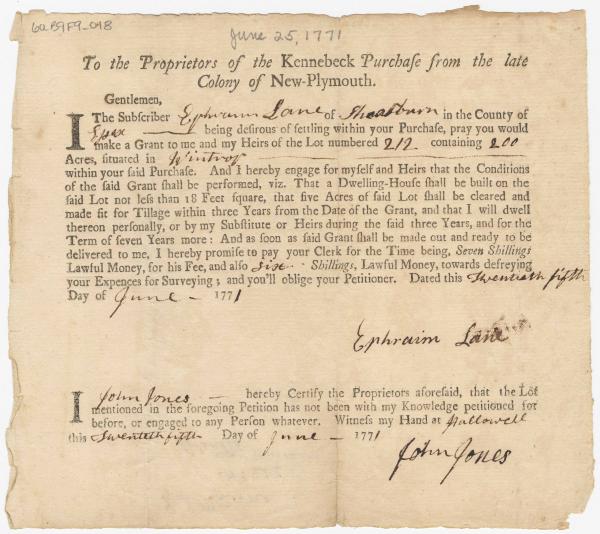 6aB9F9-048
June 25, 1771
To the Proprietors of the Kennebeck Purchaſe from the late
Colony of New-Plymouth.
Gentlemen,
I The Subſcriber Ephraim Lane of Shearburn in the County of
Eſsex being deſirous of ſettling within your Purchaſe, pray you would
make a Grant to me and my Heirs of the Lot numbered 212 containing 200
Acres, ſituated in Wintrop
within your ſaid Purchaſe. And I hereby engage for myſelf and Heirs that the Conditions
of the ſaid Grant ſhall be performed, viz. That a Dwelling-Houſe ſhall be built on the
ſaid Lot not leſs than 18 Feet ſquare, that five Acres of ſaid Lot ſhall be cleared and
made fit for Tillage within three Years from the Date of the Grant, and that I will dwell
thereon perſonally, or by my Subſtitute or Heirs during the ſaid three Years, and for the
Term of ſeven Years more: And as ſoon as ſaid Grant ſhall be made out and ready to be
delivered to me, I hereby promiſe to pay your Clerk for the Time being, Seven Shillings
Lawful Money, for his Fee, and alſo six Shillings, Lawful Money, towards defreying
your Expences for Surveying; and you'll oblige your Petitioner. Dated this twenteth fifth
Day of June - 1771
Ephraim Lane
I John Jones - hereby Certify the Proprietors aforeſaid, that the Lot
mentioned in the foregoing Petition has not been with my Knowledge petitioned for
before, or engaged to any Perſon whatever. Witneſs my Hand at Hallowell
this twenteth fifth Day of June - 1771
John Jones